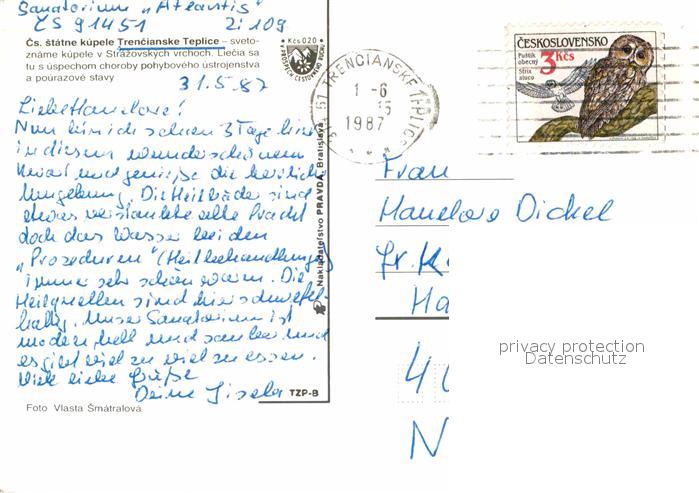 Sanatorium "Atlantis"
ČS 91451 Z: 109
Čs. štátne kúpele Trenčianske Teplice – sveto-
známe kúpele v Strážovských vrchoch. Liečia sa
tu s úspechom choroby pohybového ústrojenstva
a poúrazové stavy
Kčs 0,20
31.5.87
Liebe Hanelore!
Nun bin ich schon 3 Tage hier
in diesem wunderschönen
Kurort und genieße die herrliche
Umgebung. Die Heilbäder sind
etwas alte Pracht
doch das Wasser bei den
„Prozeduren" (Heilbehandlungen)
immer sehr schön warm. Die
Heilquellen sind hier schwefel-
haltig. Unser Sanatorium ist
modern, hell und sauber und
es gibt viel zu viel zu essen.
Viele liebe Grüße
Deine Gisela
TZP-B
Foto Vlasta Šmátralová
Nakladateľstvo PRAVDA, Bratislava
TRENČIANSKE TEPLICE
1 -6
15
1987
ČESKOSLOVENSKO
3 Kčs
Puštík
obecný
Strix
aluco
Frau
Hanelore Dickel
Fr. K
Ha
4
N
privacy protection
Datenschutz